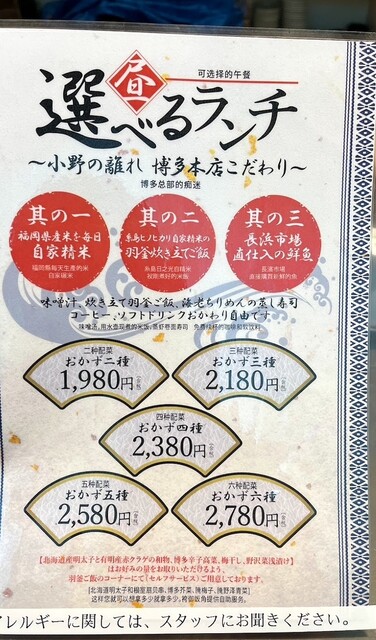 昼
可选择的午餐
選べるランチ
〜小野の離れ 博多本店こだわり〜
博多总部的痴迷
其の一
福岡県産米を毎日
自家精米
福岡縣每天生產的米
自家碾米
其の二
糸島ヒノヒカリ自家精米の
羽釜炊き立てご飯
其の三
長浜市場
直仕入の鮮魚
長濱市場
直接購買新鮮的魚
味噌汁、炊き立て羽釜ご飯、海老ちりめんの蒸し寿司
コーヒー、ソフトドリンクおかわり自由です
二种配菜
おかず二種
1,980円(税込)
三种配菜
おかず三種
2,180円(税込)
四种配菜
おかず四種
2,380円(税込)
五种配菜
おかず五種
2,580円(税込)
六种配菜
おかず六種
2,780円(税込)
【北海道産明太子と有明産赤クラゲの和物、博多辛子高菜、梅干し、野沢菜浅漬け】
はお好みの量をお取りいただけるよう、
羽釜ご飯のコーナーにて【セルフサービス】ご用意しております。
レルギーに関しては、スタッフにお聞きください。